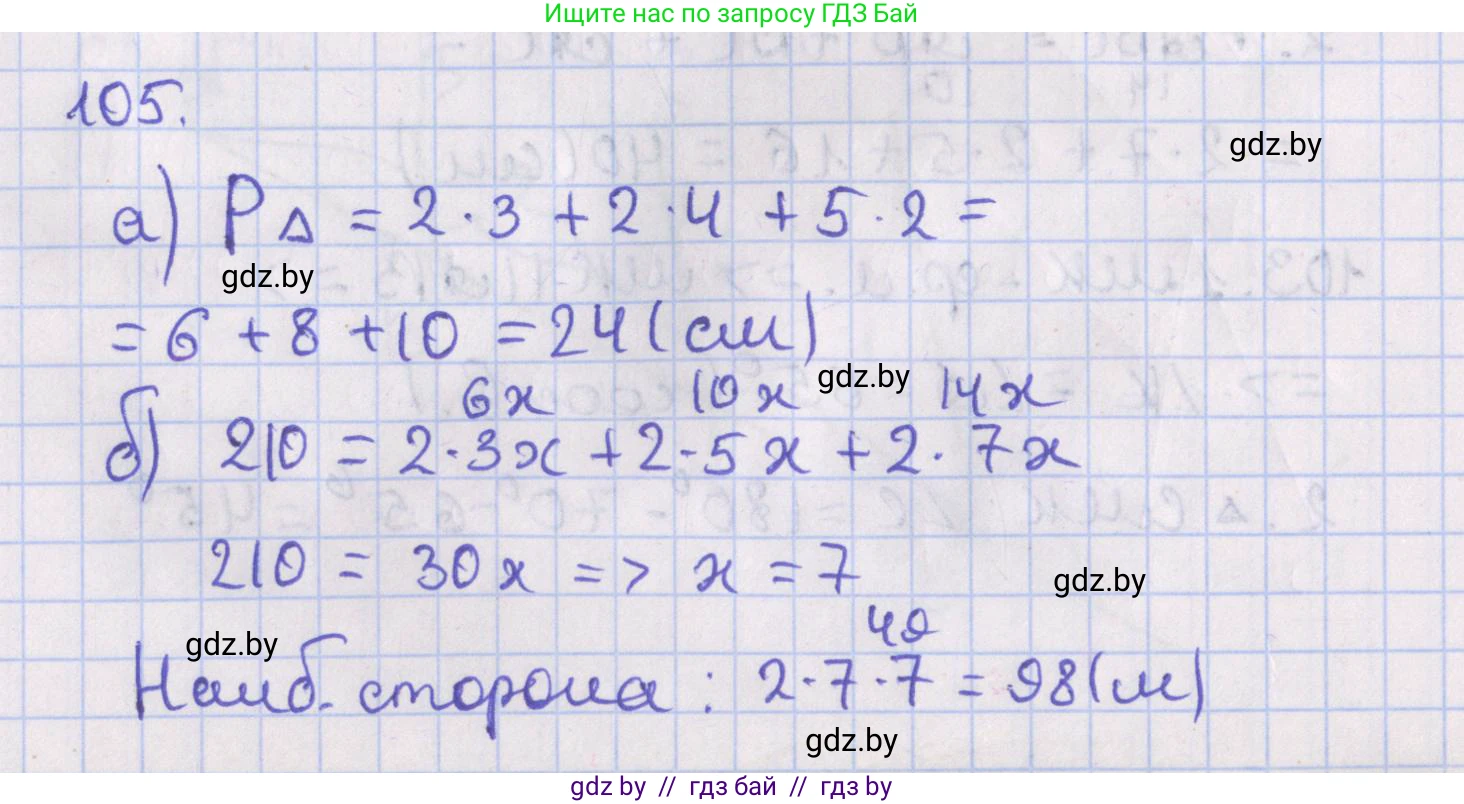 Ищите нас по запросу ГДЗ Бай
105.
gdz.by
а) P△ = 2·3 + 2·4 + 5·2 =
gdz.by
= 6 + 8 + 10 = 24 (см)
gdz.by
6x 10x 14x
б) 210 = 2·3x + 2·5x + 2·7x
210 = 30x => x = 7
gdz.by
49
gdz.by
Наиб. сторона : 2·7·7 = 98 (м)
gdz.by
gdz.by // гдз бай // гдз by